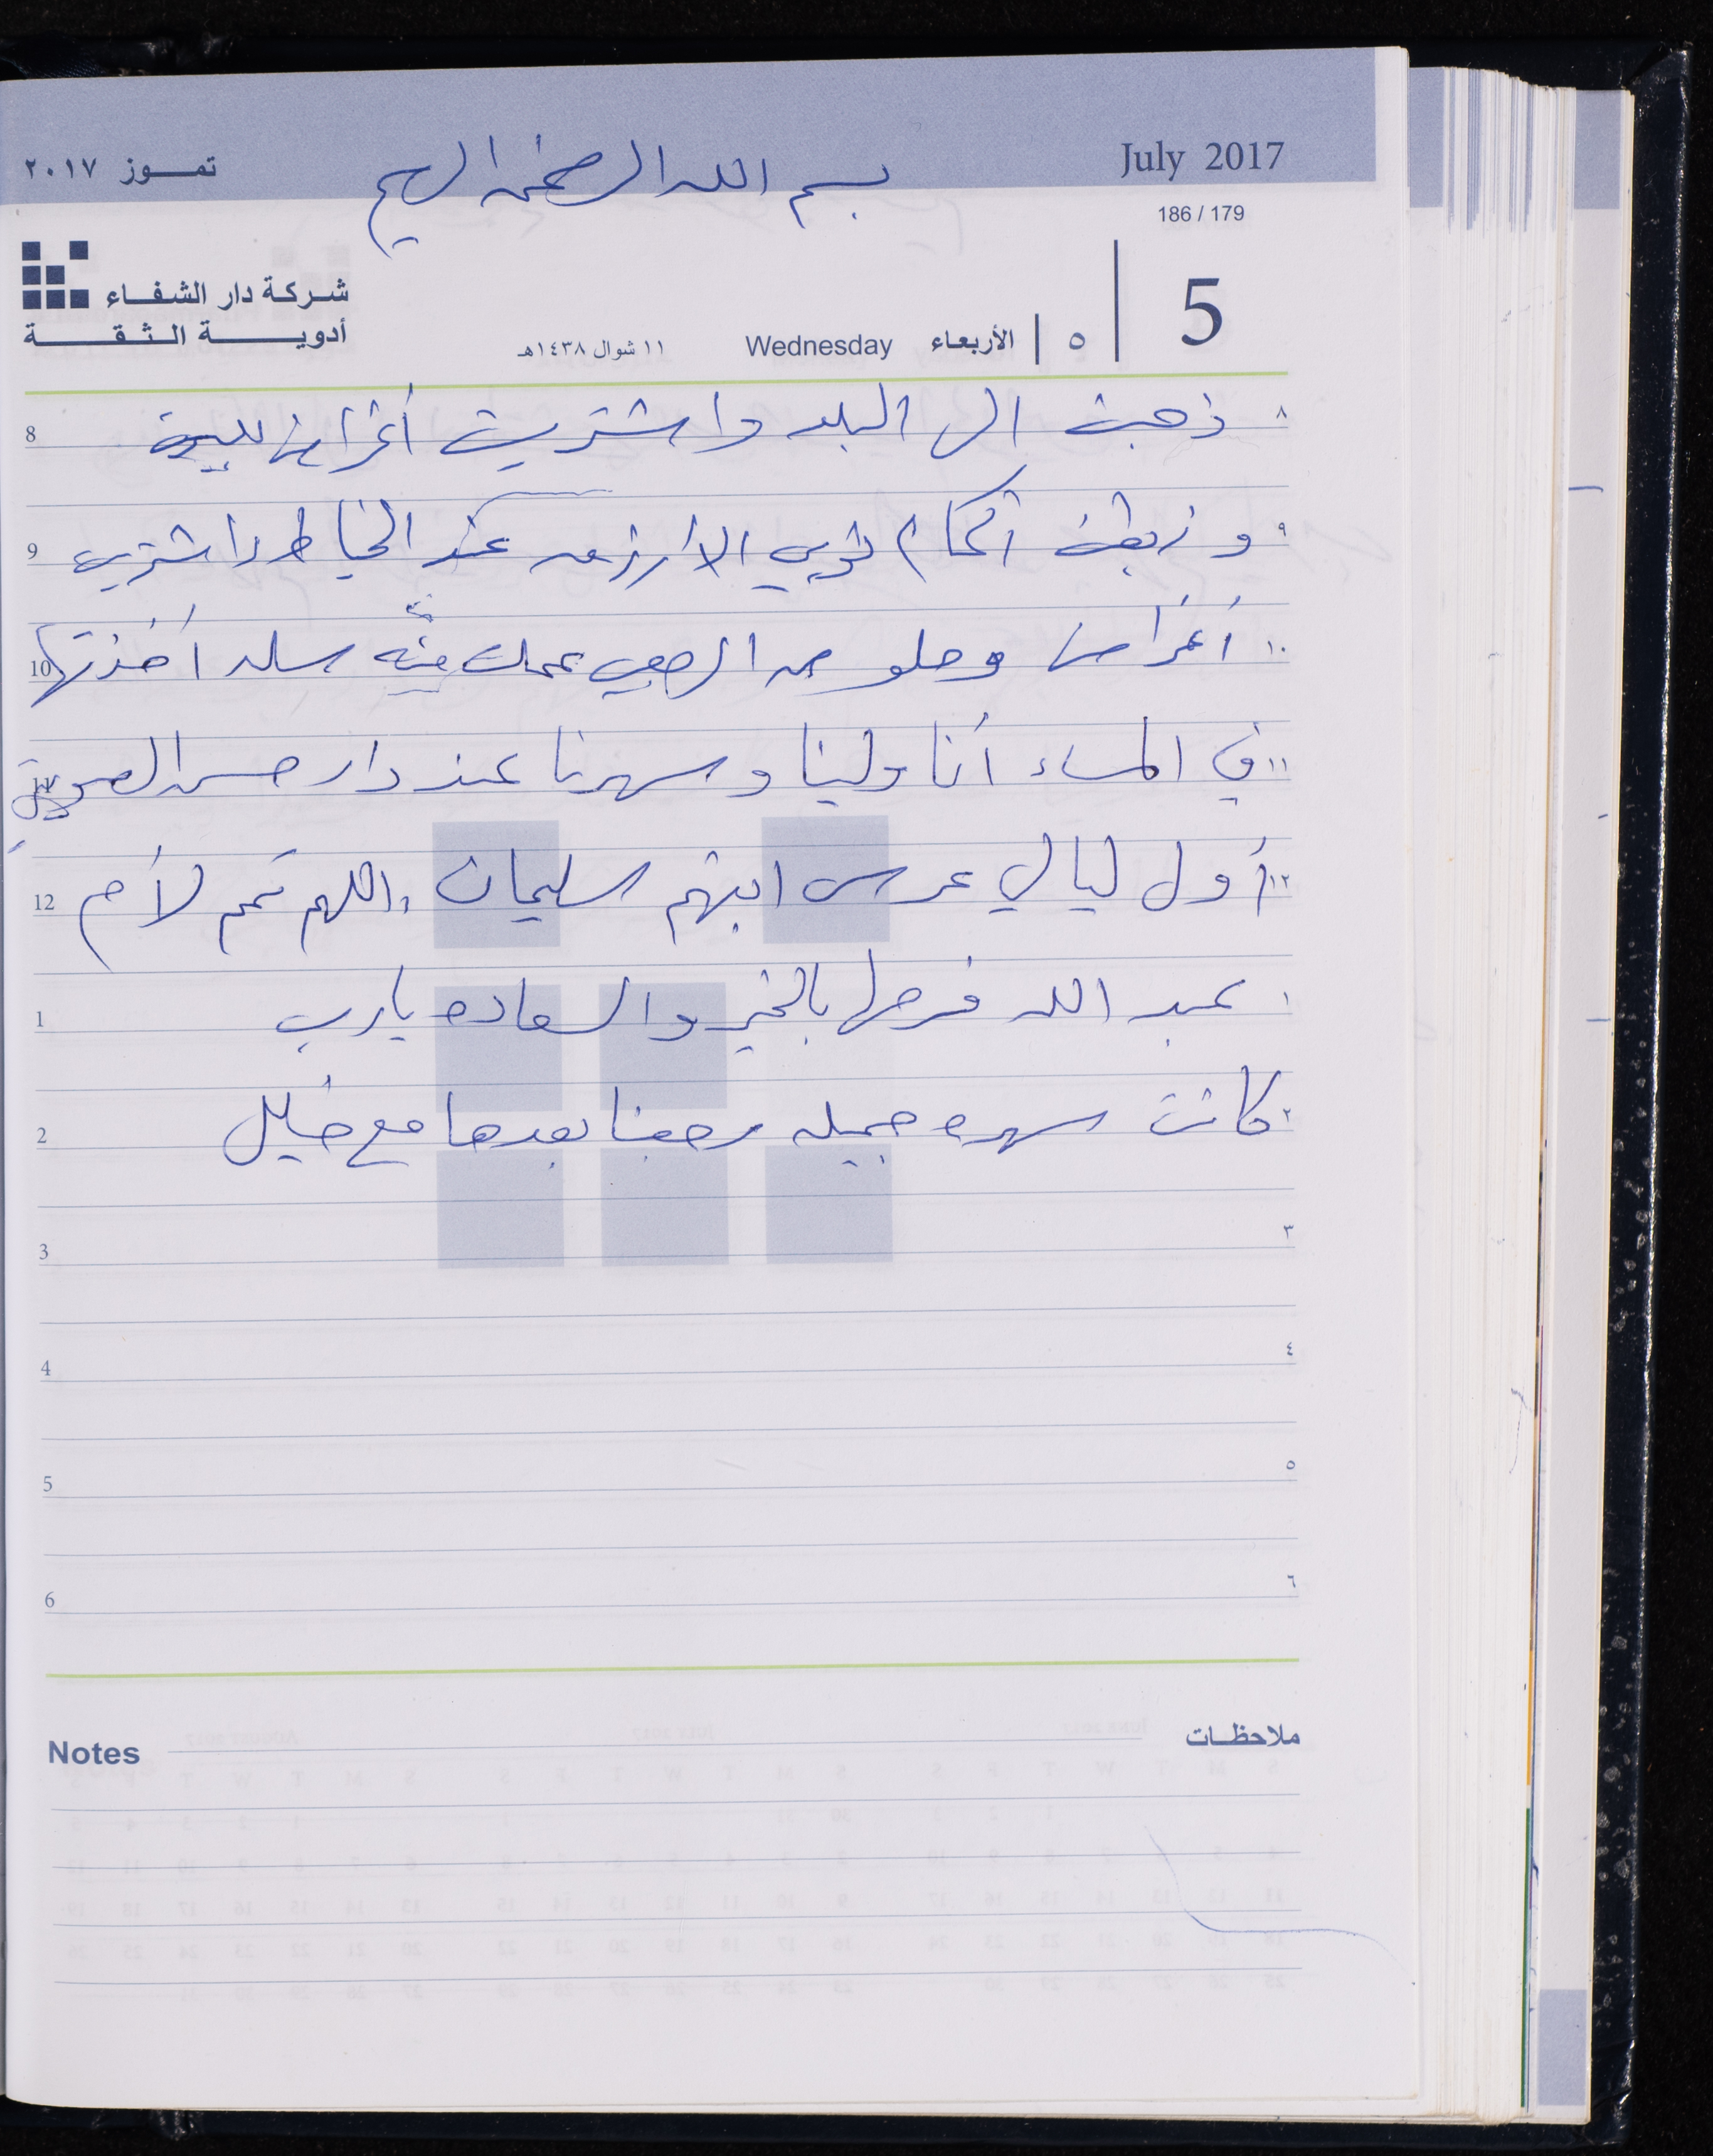 July 2017
تمـــوز ٢٠١٧
بسم الله الرحمن الرحيم
186 / 179
شـركـة دار الشفـاء
أدويـــــة الـثـقـــة
5 | ٥ | الأربعاء Wednesday ١١ شوال ١٤٣٨هـ
٨ ذهبت الى البلد واشتريت أغراض للبيت 8
٩ و زبطت اكمام ثوبي الأزرق عند الخياط واشتريت 9
١٠ أغراض وحلو من الرجبي عملت منه سله أخذتها 10
١١ في المساء أنا ولينا وسهرنا عند دار حسن 11
١٢ أول ليالي عرس ابنهم سليمان، اللهم تمم لأم 12
١ عبد الله فرحها بالخير والسعاده يارب 1
٢ كانت سهره جميله رجعنا بعدها مع خليل 2
٣ 3
٤ 4
٥ 5
٦ 6
Notes ملاحظـات